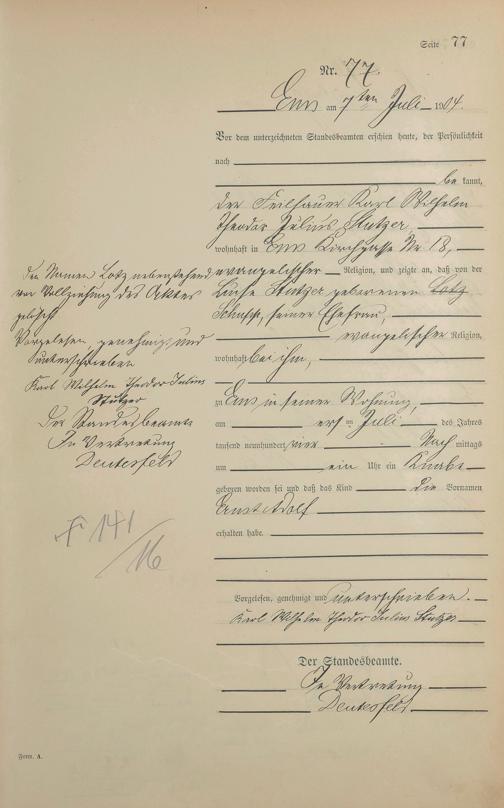 Seite 77
Nr. 77.
Ems am 7ten Juli 1904.
Vor dem unterzeichneten Standesbeamten erschien heute, der Persönlichkeit
nach
be kannt,
der Feilhauer Karl Wilhelm
Theodor Julius Stutzer,
wohnhaft in Ems Kirchgasse Nr. 18,
evangelischer Religion, und zeigte an, daß von der
Stutzer geborenen Lotz
seiner Ehefrau,
evangelischer Religion,
wohnhaft bei ihm,
zu Ems in seiner Wohnung,
am ersten Juli des Jahres
tausend neunhundert vier Nach mittags
um ein Uhr ein Knabe
geboren worden sei und daß das Kind die Vornamen
Ernst Adolf
erhalten habe.
Vorgelesen, genehmigt und unterschrieben.
Karl Wilhelm Theodor Julius Stutzer
Der Standesbeamte.
In Vertretung
Den Namen Lotz nebenstehend
vor Vollziehung des Aktes
gelöscht
Vorgelesen, genehmigt und
unterschrieben
Karl Wilhelm Theodor Julius
Stutzer
Der Standesbeamte
In Vertretung
F 141/16
Form. A.